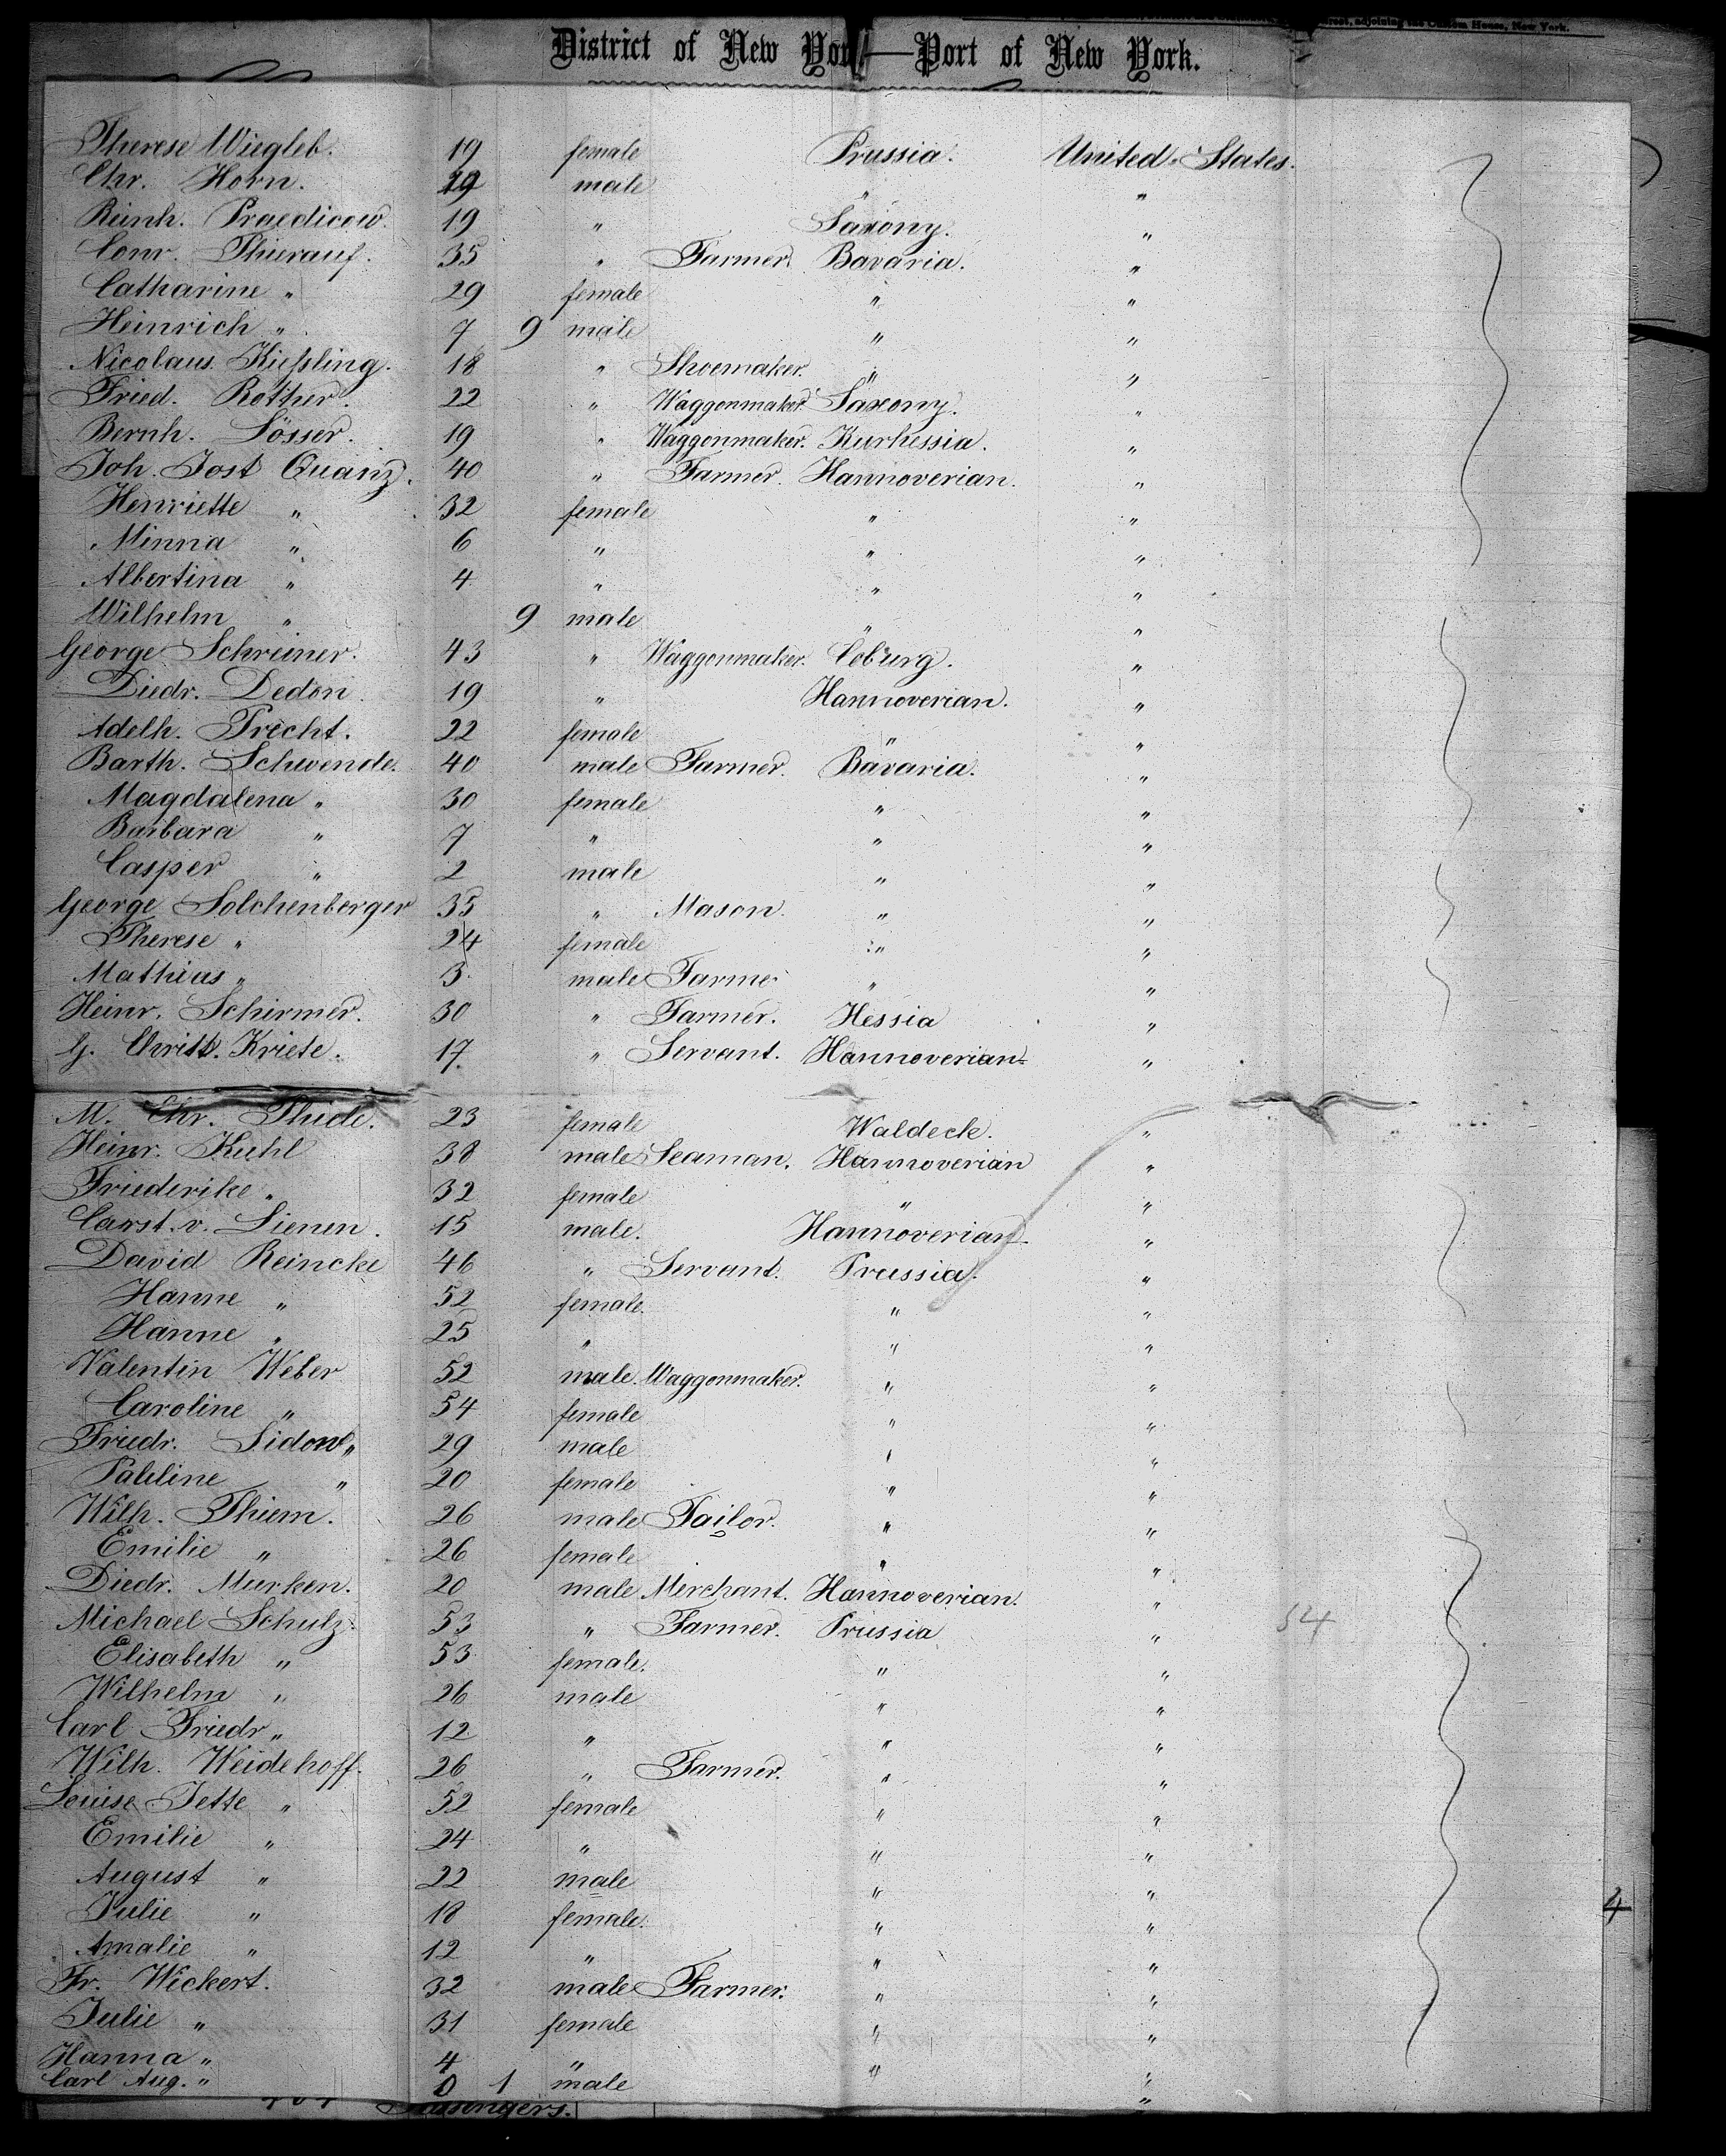 District of New York—Port of New York.
Therese Wiegleb. 19 female Prussia. United States.
Chr. Horn. 29 male " "
Reinh. Praedicow. 19 " Saxony. "
Conr. Thierauf. 35 " Farmer. Bavaria. "
Catharine " 29 female " "
Heinrich " 7 9 male " "
Nicolaus Kießling. 18 " Shoemaker. " "
Fried. Rother. 22 " Waggonmaker. Saxony. "
Bernh. Lösser. 19 " Waggonmaker. Kurhessia. "
Joh. Jost Quanz. 40 " Farmer. Hannoverian. "
Henriette " 32 female " "
Minna " 6 " " "
Albertina " 4 " " "
Wilhelm " 9 male " "
George Schreiner. 43 " Waggonmaker. Coburg. "
Diedr. Dedon 19 " Hannoverian. "
Adelh. Precht. 22 female " "
Barth. Schwende. 40 male Farmer. Bavaria. "
Magdalena " 30 female " "
Barbara " 7 " " "
Casper " 2 male " "
George Solchenberger 35 " Mason. " "
Therese " 24 female " "
Mathias " 3 male Farmer " "
Heinr. Schirmer. 30 " Farmer. Hessia "
G. Christ. Kriete. 17. " Servant. Hannoverian "
M. Chr. Thiele. 23 female Waldeck. "
Heinr. Kuhl 38 male Seaman. Hannoverian "
Friederike " 32 female " "
Carst. v. Lienen. 15 male. Hannoverian "
David Reincke 46 " Servant. Prussia. "
Hanne " 52 female. " "
Hanne " 25 " " "
Valentin Weber 52 male. Waggonmaker. " "
Caroline " 54 female " "
Friedr. Sidow " 29 male " "
Pauline " 20 female " "
Wilh. Thiem. 26 male Tailor. " "
Emilie " 26 female " "
Diedr. Murken. 20 male Merchant. Hannoverian. "
Michael Schulz. 53 " Farmer. Prussia " 54
Elisabeth " 53 female. " "
Wilhelm " 26 male " "
Carl Friedr " 12 " " "
Wilh. Weidehoff. 26 " Farmer. " "
Louise Jette " 52 female " "
Emilie " 24 " " "
August " 22 male " "
Julie " 18 female. " " 4
Amalie " 12 " " "
Fr. Wickert. 32 male Farmer. " "
Julie " 31 female " "
Hanna " 4 " " "
Carl Aug. " 0 1 male "
Passengers.